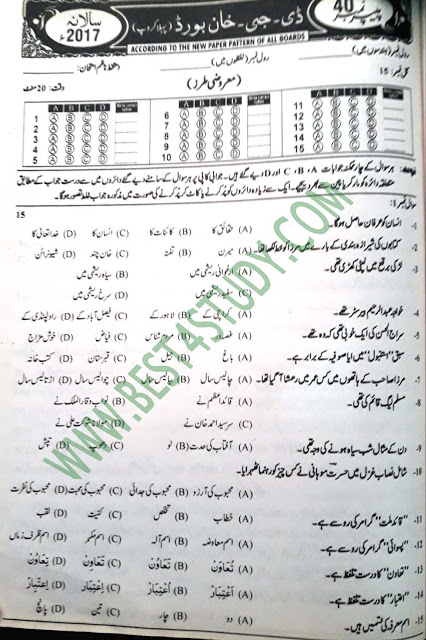 پیپر نمبر 40
ڈی۔جی۔خان بورڈ (پہلا گروپ)
سالانہ 2017ء
ACCORDING TO THE NEW PAPER PATTERN OF ALL BOARDS
رول نمبر (ہندسوں میں)
رول نمبر (لفظوں میں)
کل نمبر: 15
(معروضی طرز)
وقت: 20 منٹ
A B C D
1 A B C D
2 A B C D
3 A B C D
4 A B C D
5 A B C D
A B C D
6 A B C D
7 A B C D
8 A B C D
9 A B C D
10 A B C D
A B C D
11 A B C D
12 A B C D
13 A B C D
14 A B C D
15 A B C D
ہر سوال کے چار ممکنہ جوابات A، B، C اور D دیے گئے ہیں۔ جوابی کاپی پر ہر سوال کے سامنے دیے گئے دائروں میں سے درست جواب کے مطابق
متعلقہ دائرہ کو مارکر یا پین سے بھر دیجیے۔ ایک سے زیادہ دائروں کو پُر کرنے یا کاٹ کر پُر کرنے کی صورت میں مذکورہ جواب غلط تصور ہوگا۔
15
1- انسان کو عرفان حاصل ہوگا۔
(A) حقائق کا (B) کائنات کا (C) انسان کا (D) خدا تعالیٰ کا
2- کتابوں کی شیرازہ بندی کے بارے میں مرزا کو خط لکھا تھا۔
(A) میرن (B) تفتہ (C) خان چند (D) شیونرائن
3- لڑکی برقع میں لپٹی کھڑی تھی۔
(A) ارغوانی ریشمی میں (B) سیاہ ریشمی میں
(C) سفید ریشمی میں (D) سرخ ریشمی میں
4- خواجہ عبدالرحیم بیرسٹر تھے۔
(A) کراچی کے (B) لاہور کے (C) فیصل آباد کے (D) راولپنڈی کے
5- سراج الحسن کی ایک خوبی تھی کہ وہ تھے۔
(A) غصہ ور (B) مردم شناس (C) فیاض (D) خوش مزاج
6- سبق "استنبول" میں ایا صوفیہ کے برابر ہے۔
(A) باغ (B) جیل (C) قبرستان (D) کتب خانہ
7- مرزا صاحب کے ہاتھوں میں کس عمر میں رعشہ آ گیا تھا۔
(A) چالیس سال (B) چالیس سال (C) چوالیس سال (D) اڑتالیس سال
8- مسلم لیگ قائم کی تھی۔
(A) قائداعظم نے (B) نواب وقار الملک نے
(C) سر سید احمد خان نے (D) مولانا شوکت علی نے
9- دن کے مثال شب سیاہ ہونے کی وجہ تھی۔
(A) آفتاب کی حدت (B) لو (C) دھوپ (D) تپش
10- شامل نصاب غزل میں حسرت موہانی نے کس چیز کو رہنما ٹھہرایا۔
(A) محبوب کی آرزو (B) محبوب کی جدائی (C) محبوب کی محبت (D) محبوب کی نفرت
11- "قائد ملت" گرامر کی رو سے ہے۔
(A) خطاب (B) تخلص (C) کنیت (D) لقب
12- گرامر کی رو سے ہے۔
(A) اسم معاوضہ (B) اسم آلہ (C) اسم مکبر (D) اسم ظرف زماں
13- "تعاون" کا درست تلفظ ہے۔
(A) تعاون (B) تعاون (C) تعاون (D) تعاون
14- "اعتبار" کا درست تلفظ ہے۔
(A) اعتبار (B) اعتبار (C) اعتبار (D) اعتبار
15- اسم معرفہ کی قسمیں ہیں۔
(A) دو (B) چار (C) تین (D) پانچ
WWW.BEST4STUDY.COM